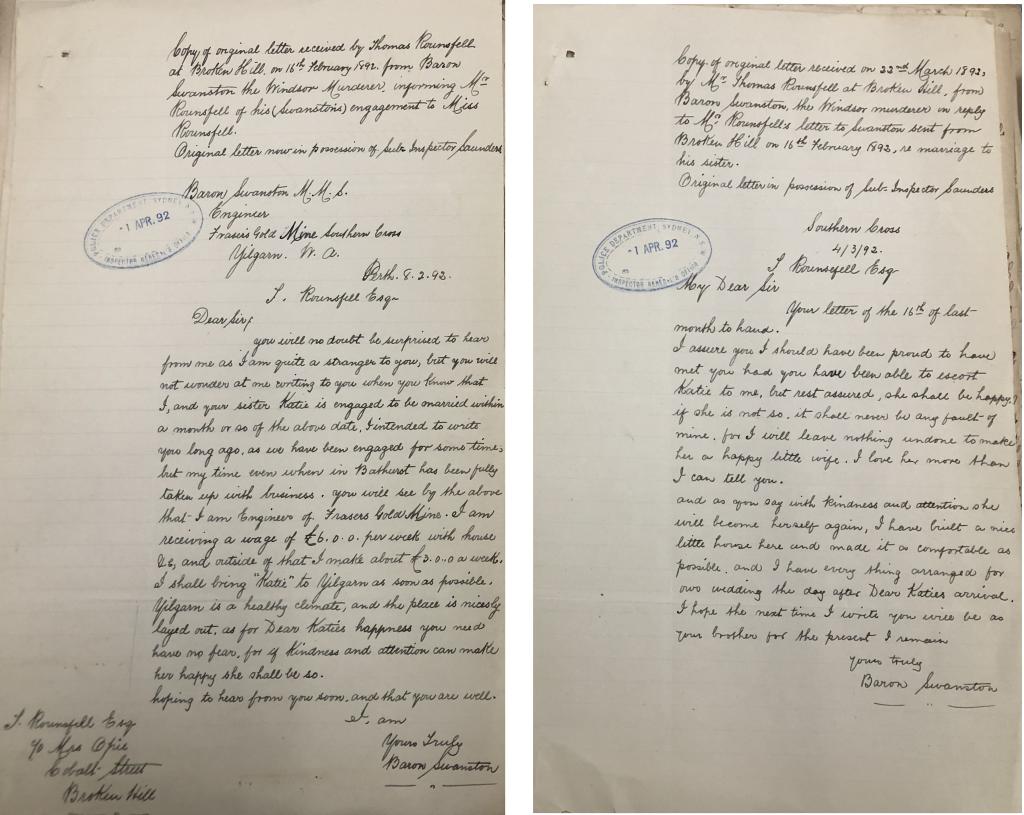 Copy of original letter received by Thomas Rounsfell
at Broken Hill, on 16th February 1892. from Baron
Swanston the Windsor Murderer, informing Mr
Rounsfell of his (Swanstons) engagement to Miss
Rounsfell.
Original letter now in possession of Sub-Inspector Saunders
Baron Swanston M.M.S.
Engineer
Frasers Gold Mine Southern Cross
Yilgarn. W. A.
POLICE DEPARTMENT, SYDNEY N.S.W.
-1 APR. 92
INSPECTOR GENERAL'S OFFICE
Perth. 8.2.92.
T. Rounsfell Esq
Dear Sir,
you will no doubt be surprised to hear
from me as I am quite a stranger to you, but you will
not wonder at me writing to you when you know that
I, and your sister Katie is engaged to be married within
a month or so of the above date, I intended to write
you long ago, as we have been engaged for some time,
but my time even when in Bathurst has been fully
taken up with business. you will see by the above
that I am Engineer of Frasers Gold Mine. I am
receiving a wage of £6.0.0. per week with house
&c, and outside of that I make about £3.0.0 a week.
I shall bring "Katie" to Yilgarn as soon as possible.
Yilgarn is a healthy climate, and the place is nicely
layed out, as for Dear Katies happiness you need
have no fear, for if kindness and attention can make
her happy she shall be so.
hoping to hear from you soon, and that you are well.
I am
Yours Truly
Baron Swanston
T. Rounsfell Esq
c/o Mrs Opie
Cobalt Street
Broken Hill
Copy of original letter received on 22nd March 1892,
by Mr Thomas Rounsfell at Broken Hill, from
Baron Swanston, the Windsor murderer in reply
to Mr Rounsfell's letter to Swanston sent from
Broken Hill on 16th February 1892, re marriage to
his sister.
Original letter in possession of Sub-Inspector Saunders
Southern Cross
4/3/92.
POLICE DEPARTMENT, SYDNEY N.S.W.
-1 APR. 92
INSPECTOR GENERAL'S OFFICE
T Rounsefell Esq
My Dear Sir
Your letter of the 16th of last
month to hand.
I assure you I should have been proud to have
met you had you have been able to escort
Katie to me, but rest assured, she shall be happy,
if she is not so, it shall never be any fault of
mine, for I will leave nothing undone to make
her a happy little wife. I love her more than
I can tell you.
and as you say with kindness and attention she
will become herself again, I have built a nice
little house here and made it as comfortable as
possible, and I have every thing arranged for
our wedding the day after Dear Katies arrival.
I hope the next time I write you will be as
your brother for the present I remain
yours truly
Baron Swanston